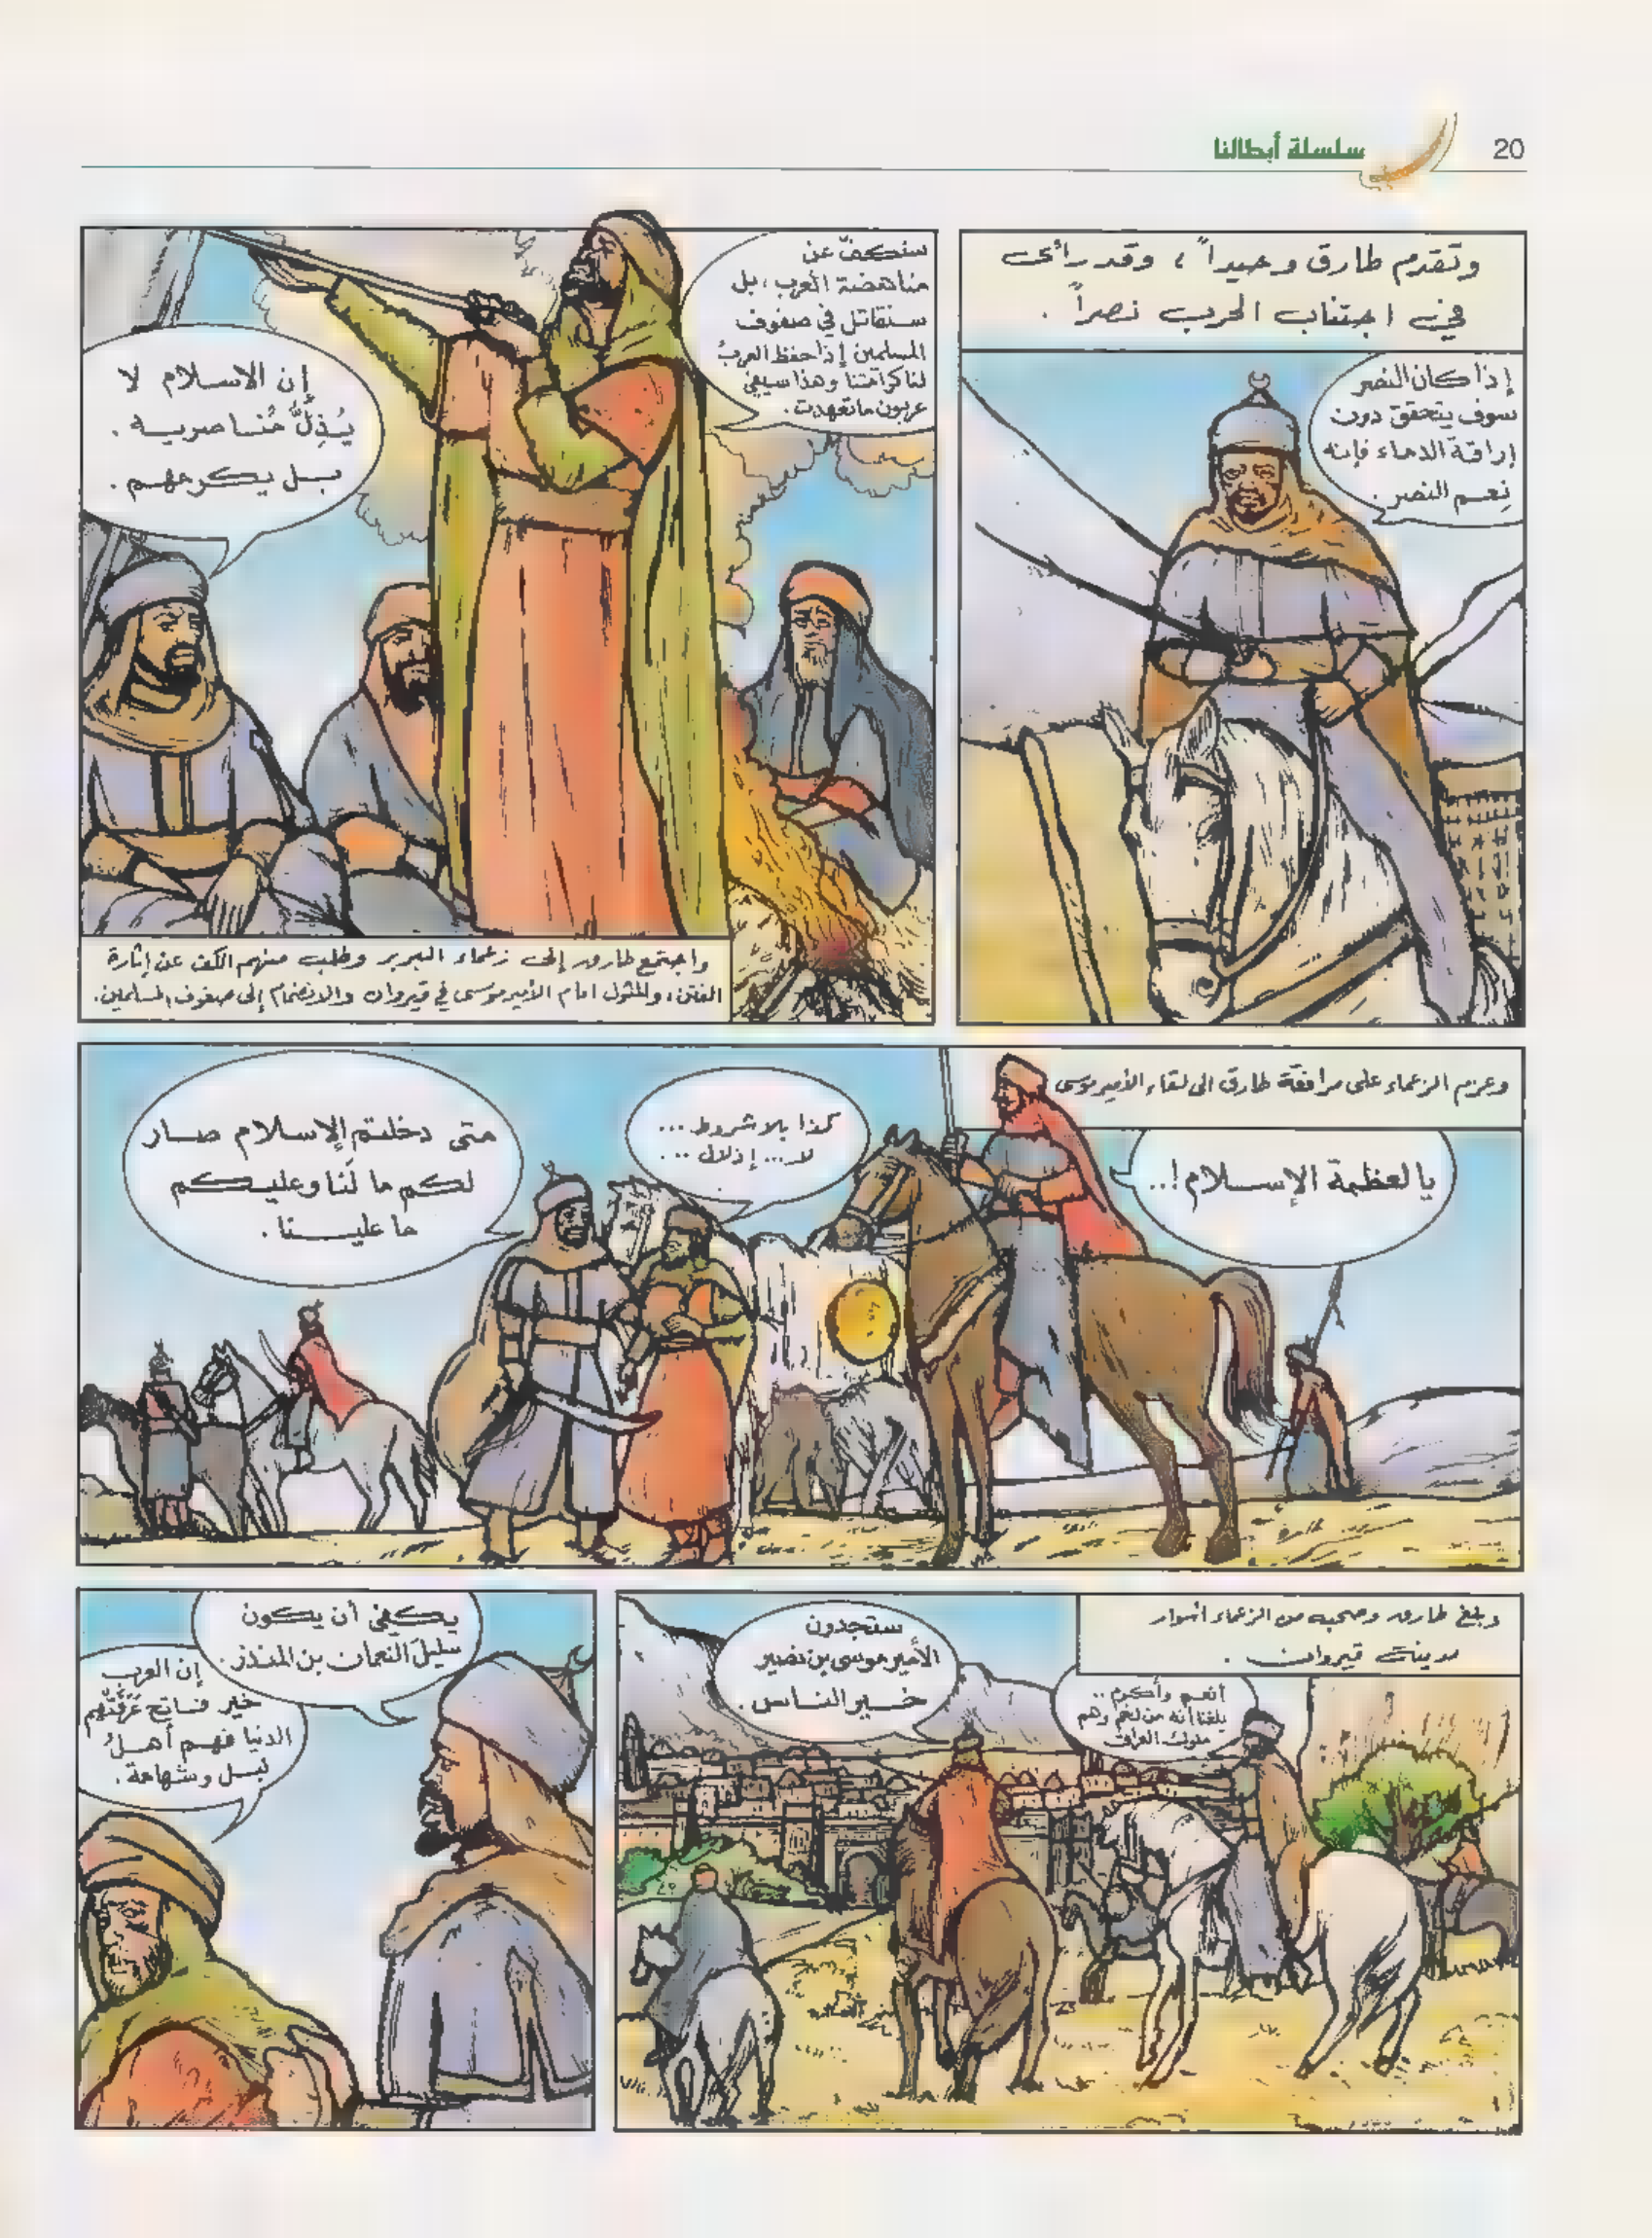 20
سلسلة أبطالنا
وتقدم طارق وحيداً، وقد رأى
في اجتناب الحرب نصراً.
إذا كان النصر
سوف يتحقق دون
إراقة الدماء فإنه
نِعم النصر.
سنكفّ عن
مناهضة العرب، بل
سنقاتل في صفوف
المسلمين إذا حفظ العربُ
لنا كرامتنا وهذا سيفي
عربون ما تعهدت.
إن الاسلام لا
يُذِلُّ مُناصريه.
بل يكرمهم.
واجتمع طارق إلى زعماء البربر وطلب منهم الكف عن إثارة
الفتن، والمثول امام الأمير موسى في قيروان والانضمام إلى صفوف المسلمين.
وعزم الزعماء على مرافقة طارق الى لقاء الأمير موسى
يا لعظمة الإسلام!..
كذا بلا شروط...
لا... إذلال...
متى دخلتم الإسلام صار
لكم ما لَنا وعليكم
ما علينا.
وبلغ طارق وصحبه من الزعماء أسوار
مدينة قيروان.
أنعم وأكرم..
بلغنا أنه من لخم وهم
ملوك العراق
ستجدون
الأمير موسى بن نصير
خير الناس.
يكفي أن يكون
سليلَ النعمان بن المنذر.
إن العرب
خير فاتح عَرَفَتْهم
الدنيا فهم أهلُ
نبل وشهامة.